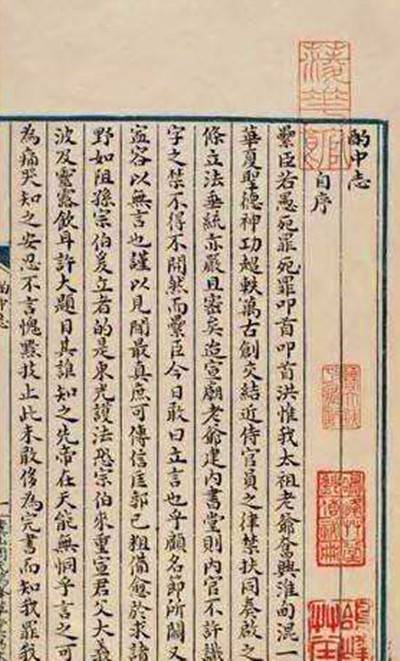 酌中志
自序
纍臣若愚死罪死罪叩首叩首洪惟我太祖老爺奮興淮甸混一
華夏聖德神功超軼萬古創交結近侍官員之律禁扶同奏啟之
條立法垂統亦嚴且密矣迨宣廟老爺建內書堂則內官不許識
字之禁不得不開然而纍臣今日敢曰立言也乎顧名節所關又
寍容以無言也謹以見聞最真庶可傳信匡郭已粗備愈於求諸
野如阻孫宗伯爰立者的是東光護法恐宗伯來重宣君父大義
波及靈露飲耳許大題目其誰知之先帝在天能無恫乎言之可
為痛哭知之安忍不言愧黔技止此未敢侈為完書而知我罪我
酌中志